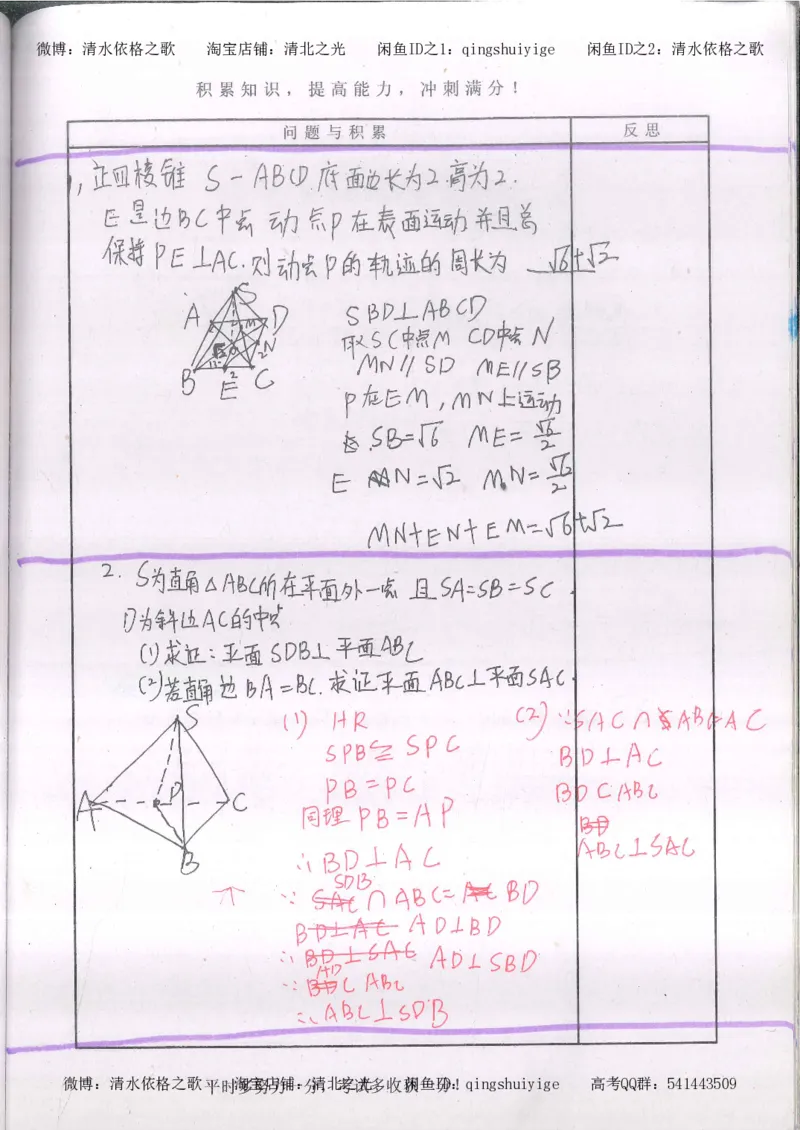 微博：清水依格之歌 淘宝店铺：清北之光 闲鱼ID之1：qingshuiyige 闲鱼ID之2：清水依格之歌
积累知识，提高能力，冲刺满分！
问题与积累 反思
1, 正四棱锥 S-ABCD 底面边长为2.高为2.
E是边BC中点 动点P在表面运动并且总
保持PE⊥AC.则动点P的轨迹的周长为 √6+√2
S
A D
M
N
B E C
2
SBD⊥ABCD
取SC中点M CD中点N
MN∥SD ME∥SB
P在EM,MN上运动
SB=√6 ME=√6/2
EN=√2 MN=√6/2
MN+EN+EM=√6+√2
2. S为直角△ABC所在平面外一点 且SA=SB=SC.
D为斜边AC的中点
(1)求证:平面SDB⊥平面ABC
(2)若直角边BA=BC.求证平面ABC⊥平面SAC.
S
A D C
B
(1) HR
SPB≌SPC
PB=PC
同理PB=AP
∴BD⊥AC
∵SDB∩ABC=BD
AD⊥BD
∴AD⊥SBD
∵AD⊂ABC
∴ABC⊥SDB
(2)∵SAC∩ABC=AC
BD⊥AC
BD⊂ABC
ABC⊥SAC
微博：清水依格之歌 淘宝店铺：清北之光 闲鱼ID：qingshuiyige 高考QQ群：541443509